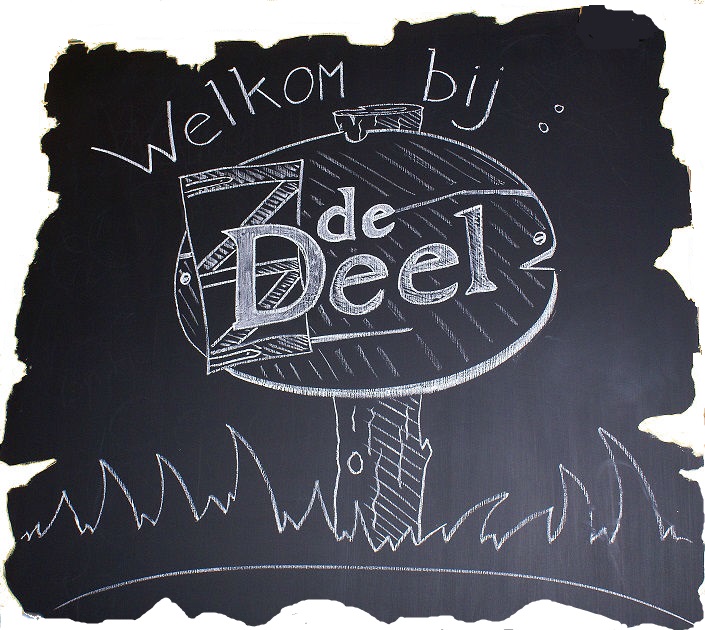 Welkom bij
de
Deel